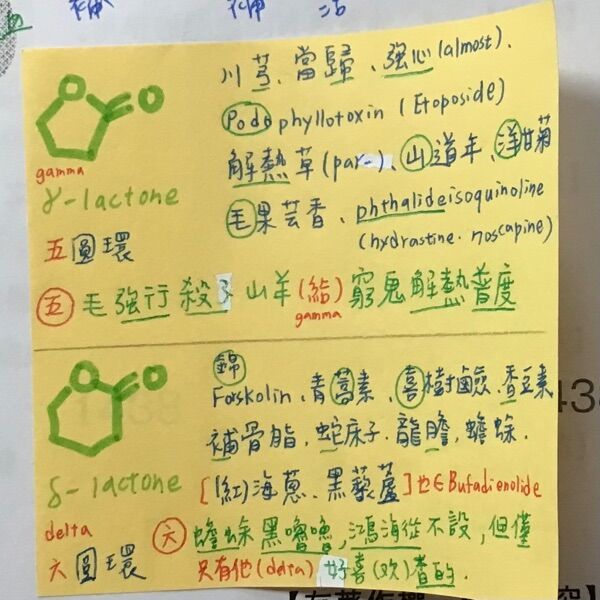 補 補 治
O O
川芎、當歸、強心(almost).
Podophyllotoxin (Etoposide)
解熱草(par-)、山道年、洋甘菊
毛果芸香、phthalideisoquinoline
(hydrastine. noscapine)
gamma
γ-lactone
五圓環
五 毛強行殺了山羊(給)窮鬼解熱普度
gamma
O O
錦
Forskolin、青蒿素、喜樹鹼、香豆素
補骨脂, 蛇床子, 龍膽, 蟾蜍.
δ-lactone
[(紅)海蔥、黑藜蘆]也∈Bufadienolide
delta
六圓環
六 蟾蜍黑嚕嚕,鴻海從不設,但僅
只有他(delta)好喜(欢)香的.
43